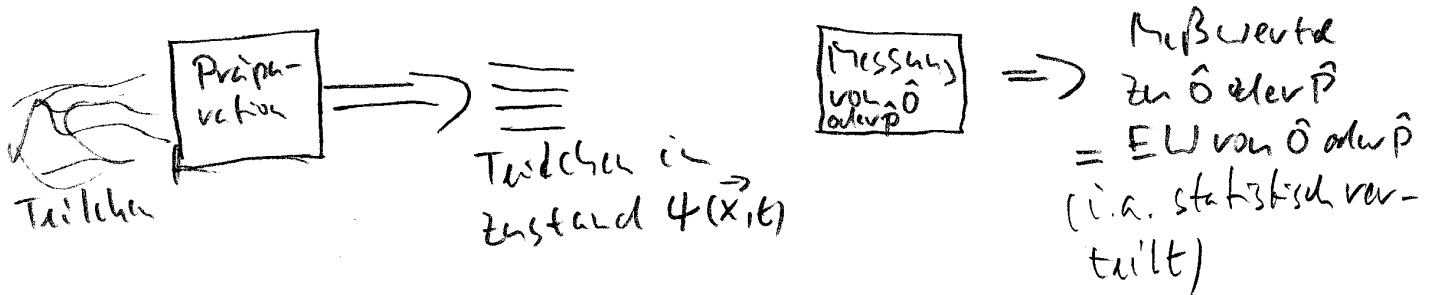 Teilchen
Präpa-
ration
Teilchen in
Zustand ψ(x⃗,t)
Messung
von Ô
oder p̂
=> Meßwerte
zu Ô oder P̂
= EW von Ô oder P̂
(i.a. statistisch ver-
teilt)